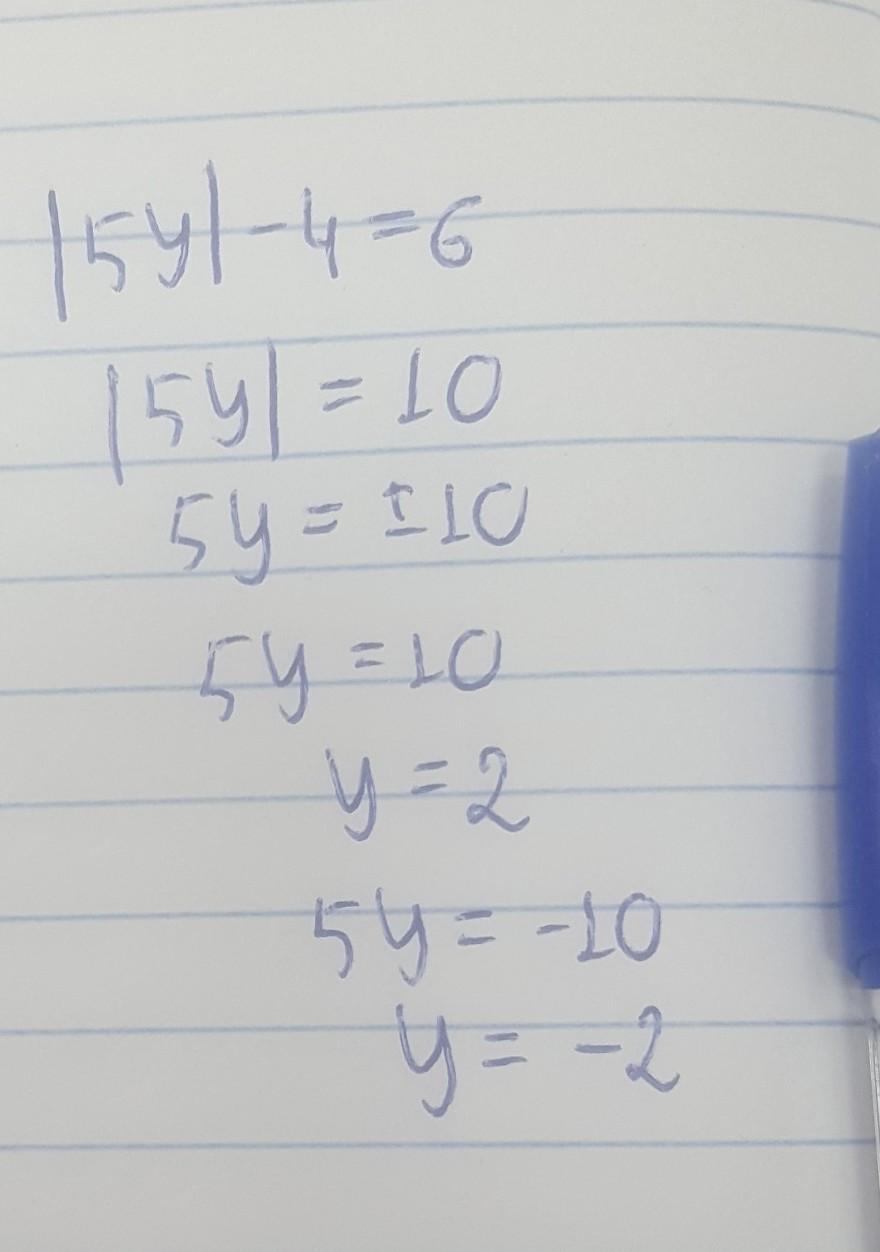 |5y|-4=6
|5y| = 10
5y = ±10
5y = 10
y = 2
5y = -10
y = -2